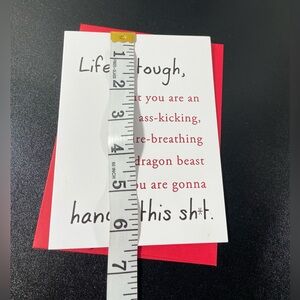 Life tough,
t you are an
ass-kicking,
re-breathing
dragon beast
u are gonna
han this sh*t.
1
2
3
4
5
6
7